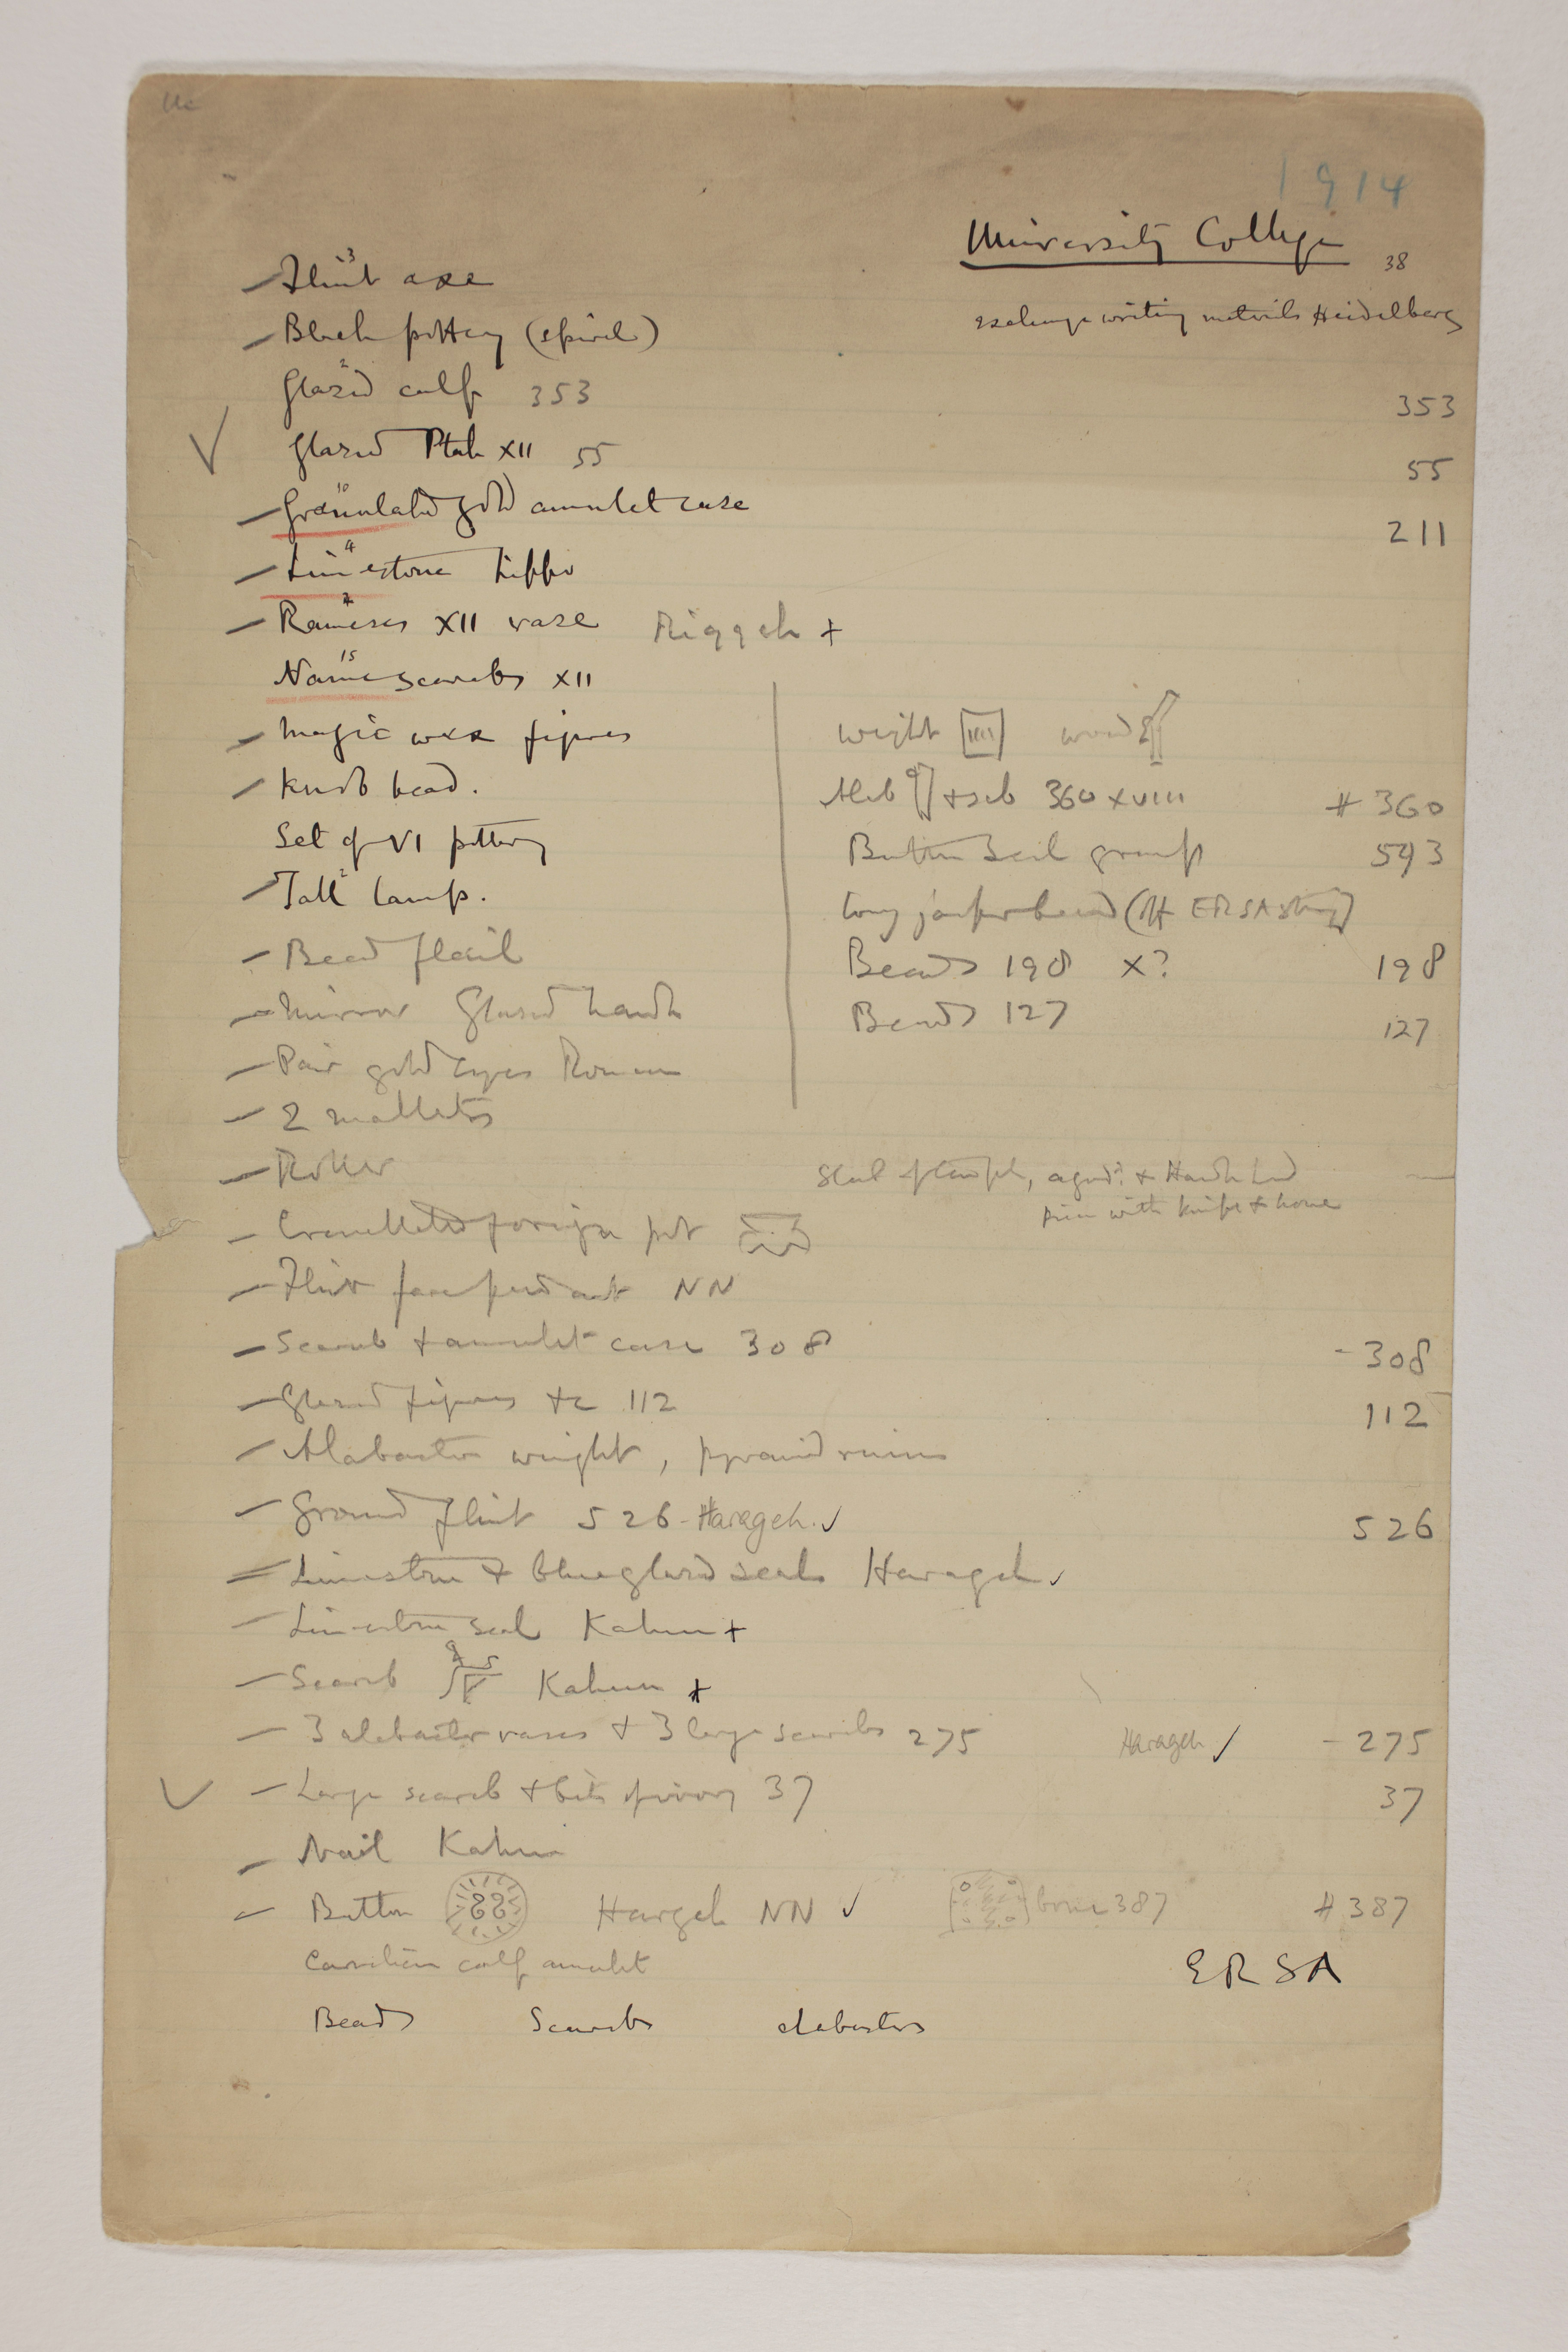 UC
1914
University College
38
exchange writing materials Heidelberg
3
Flint axe
Black pottery (spiral)
2
Glazed calf 353 353
Glazed Ptah XII 55 55
10
Granulated gold amulet case 211
4
Limestone hippo
Rameses XII vase Riqqeh +
15
Name scarabs XII
Magic wax figures
Weight IIII wood
Knob bead.
Alab + seb 360 XVIII # 360
Set of VI pottery
Button seal group 593
2
Tall lamp.
Long jasper bead (off ERSA string)
Bead flail
Beads 198 x? 198
Mirror Glazed handle
Beads 127 127
Pair gold eyes Roman
2 mallets
Roller
Seal of temple, & Hawk
with knife & hone
Crenellated foreign pot
Flint face pendant NN
Scarab & amulet case 308 - 308
Glazed figures &c 112 112
Alabaster weight, pyramid ruins
Ground flint 526 - Harageh. ✓ 526
Limestone & blue glazed seals Harageh ✓
Limestone seal Kahun +
Scarab Kahun +
3 alabaster vases & 3 large scarabs 275 Harageh ✓ - 275
Large scarab & bits of ivory 37 37
Nail Kahun
Button Hargeh NN ✓ bone 387 # 387
Carnelian calf amulet
ERSA
Beads Scarabs alabasters